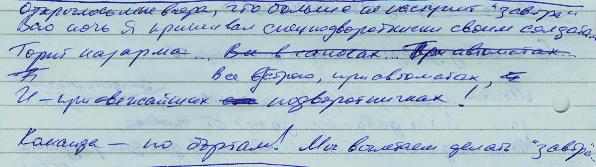 Открылось мне вчера, что больше не наступит "завтра"
Всю ночь я пришивал спецподворотнички своим солдатам
Горит казарма... Все в сапогах... При автоматах
Все в строю, при автоматах,
И – при свежайших подворотничках!
Команда – по бортам! Мы вылетаем делать "завтра"...